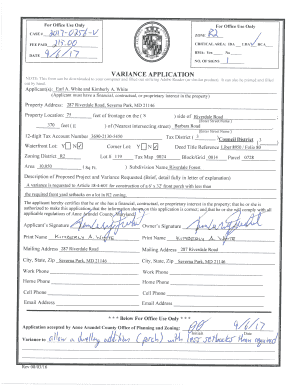 For Office Use Only
CASE # 2017-0254-V
FEE PAID
DATE 9/6/17
For Office Use Only
ZONE R2
CRITICAL AREA: IDA LDA RCA
BMA: Yes No
NO. OF SIGNS 1
VARIANCE APPLICATION
Applicant(s): Earl A. White and Kimberly A. White
(Applicant must have a financial, contractual, or proprietary interest in the property)
Property Address: 287 Riverdale Road, Severna Park, MD 21146
Property Location: 75 feet of frontage on the side of Riverdale Road
feet of (Nearest intersecting street) Road
12-digit Tax Account Number Tax District 3 Council District
Waterfront Lot: Y N Corner Lot: Y N Deed Title Reference
Zoning District R2 Lot # Tax Map 0024 Block/Grid Parcel 0728
Area (sq ft) Subdivision Name Riverdale Forest
Description of Proposed Project and Variance Requested (Brief, detail fully in letter of explanation)
A variance is requested to Article for construction of a 6' x 32' front porch with less than
the required front yard setback on a R2 zoning.
The applicant hereby certifies that he or she has a financial, contractual, or proprietary interest in the property; that he or she is
authorized to make this application; that the information shown on this application is correct; and that he or she will comply with all
applicable regulations of Anne Arundel County, Maryland.
Applicant's Signature Owner's Signature
Print Name Kimberly A. White Print Name Kimberly A. White
Mailing Address 287 Riverdale Road Mailing Address 287 Riverdale Road
City, State, Zip Severna Park, MD 21146 City, State, Zip Severna Park, MD 21146
Work Phone Work Phone
Home Phone Home Phone
Cell Phone Cell Phone
Email Address Email Address
*** Below For Office Use Only ***
Application accepted by Anne Arundel County Office of Planning and Zoning: 9/6/17
Initials Date
Variance to allow a dwelling addition (porch) with less setbacks than required